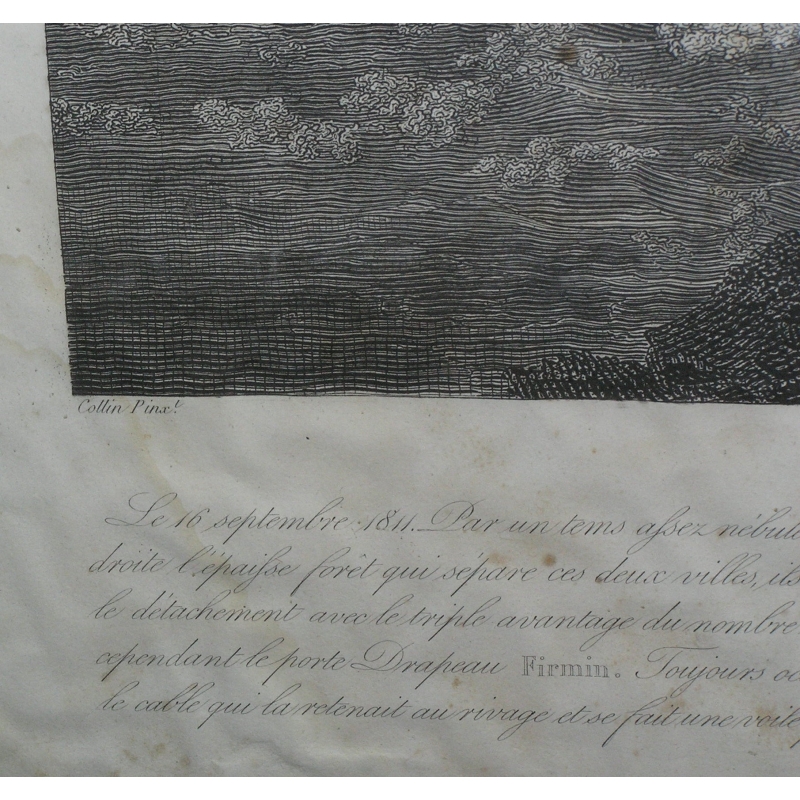 Collin Pinx.t
Le 16 septembre 1811. Par un tems aſsez nébule
droite l'épaiſse forêt qui sépare ces deux villes, ils
le détachement avec le triple avantage du nombre
cependant le porte Drapeau Firmin. Toujours oc
le cable qui la retenait au rivage et se fait une voile